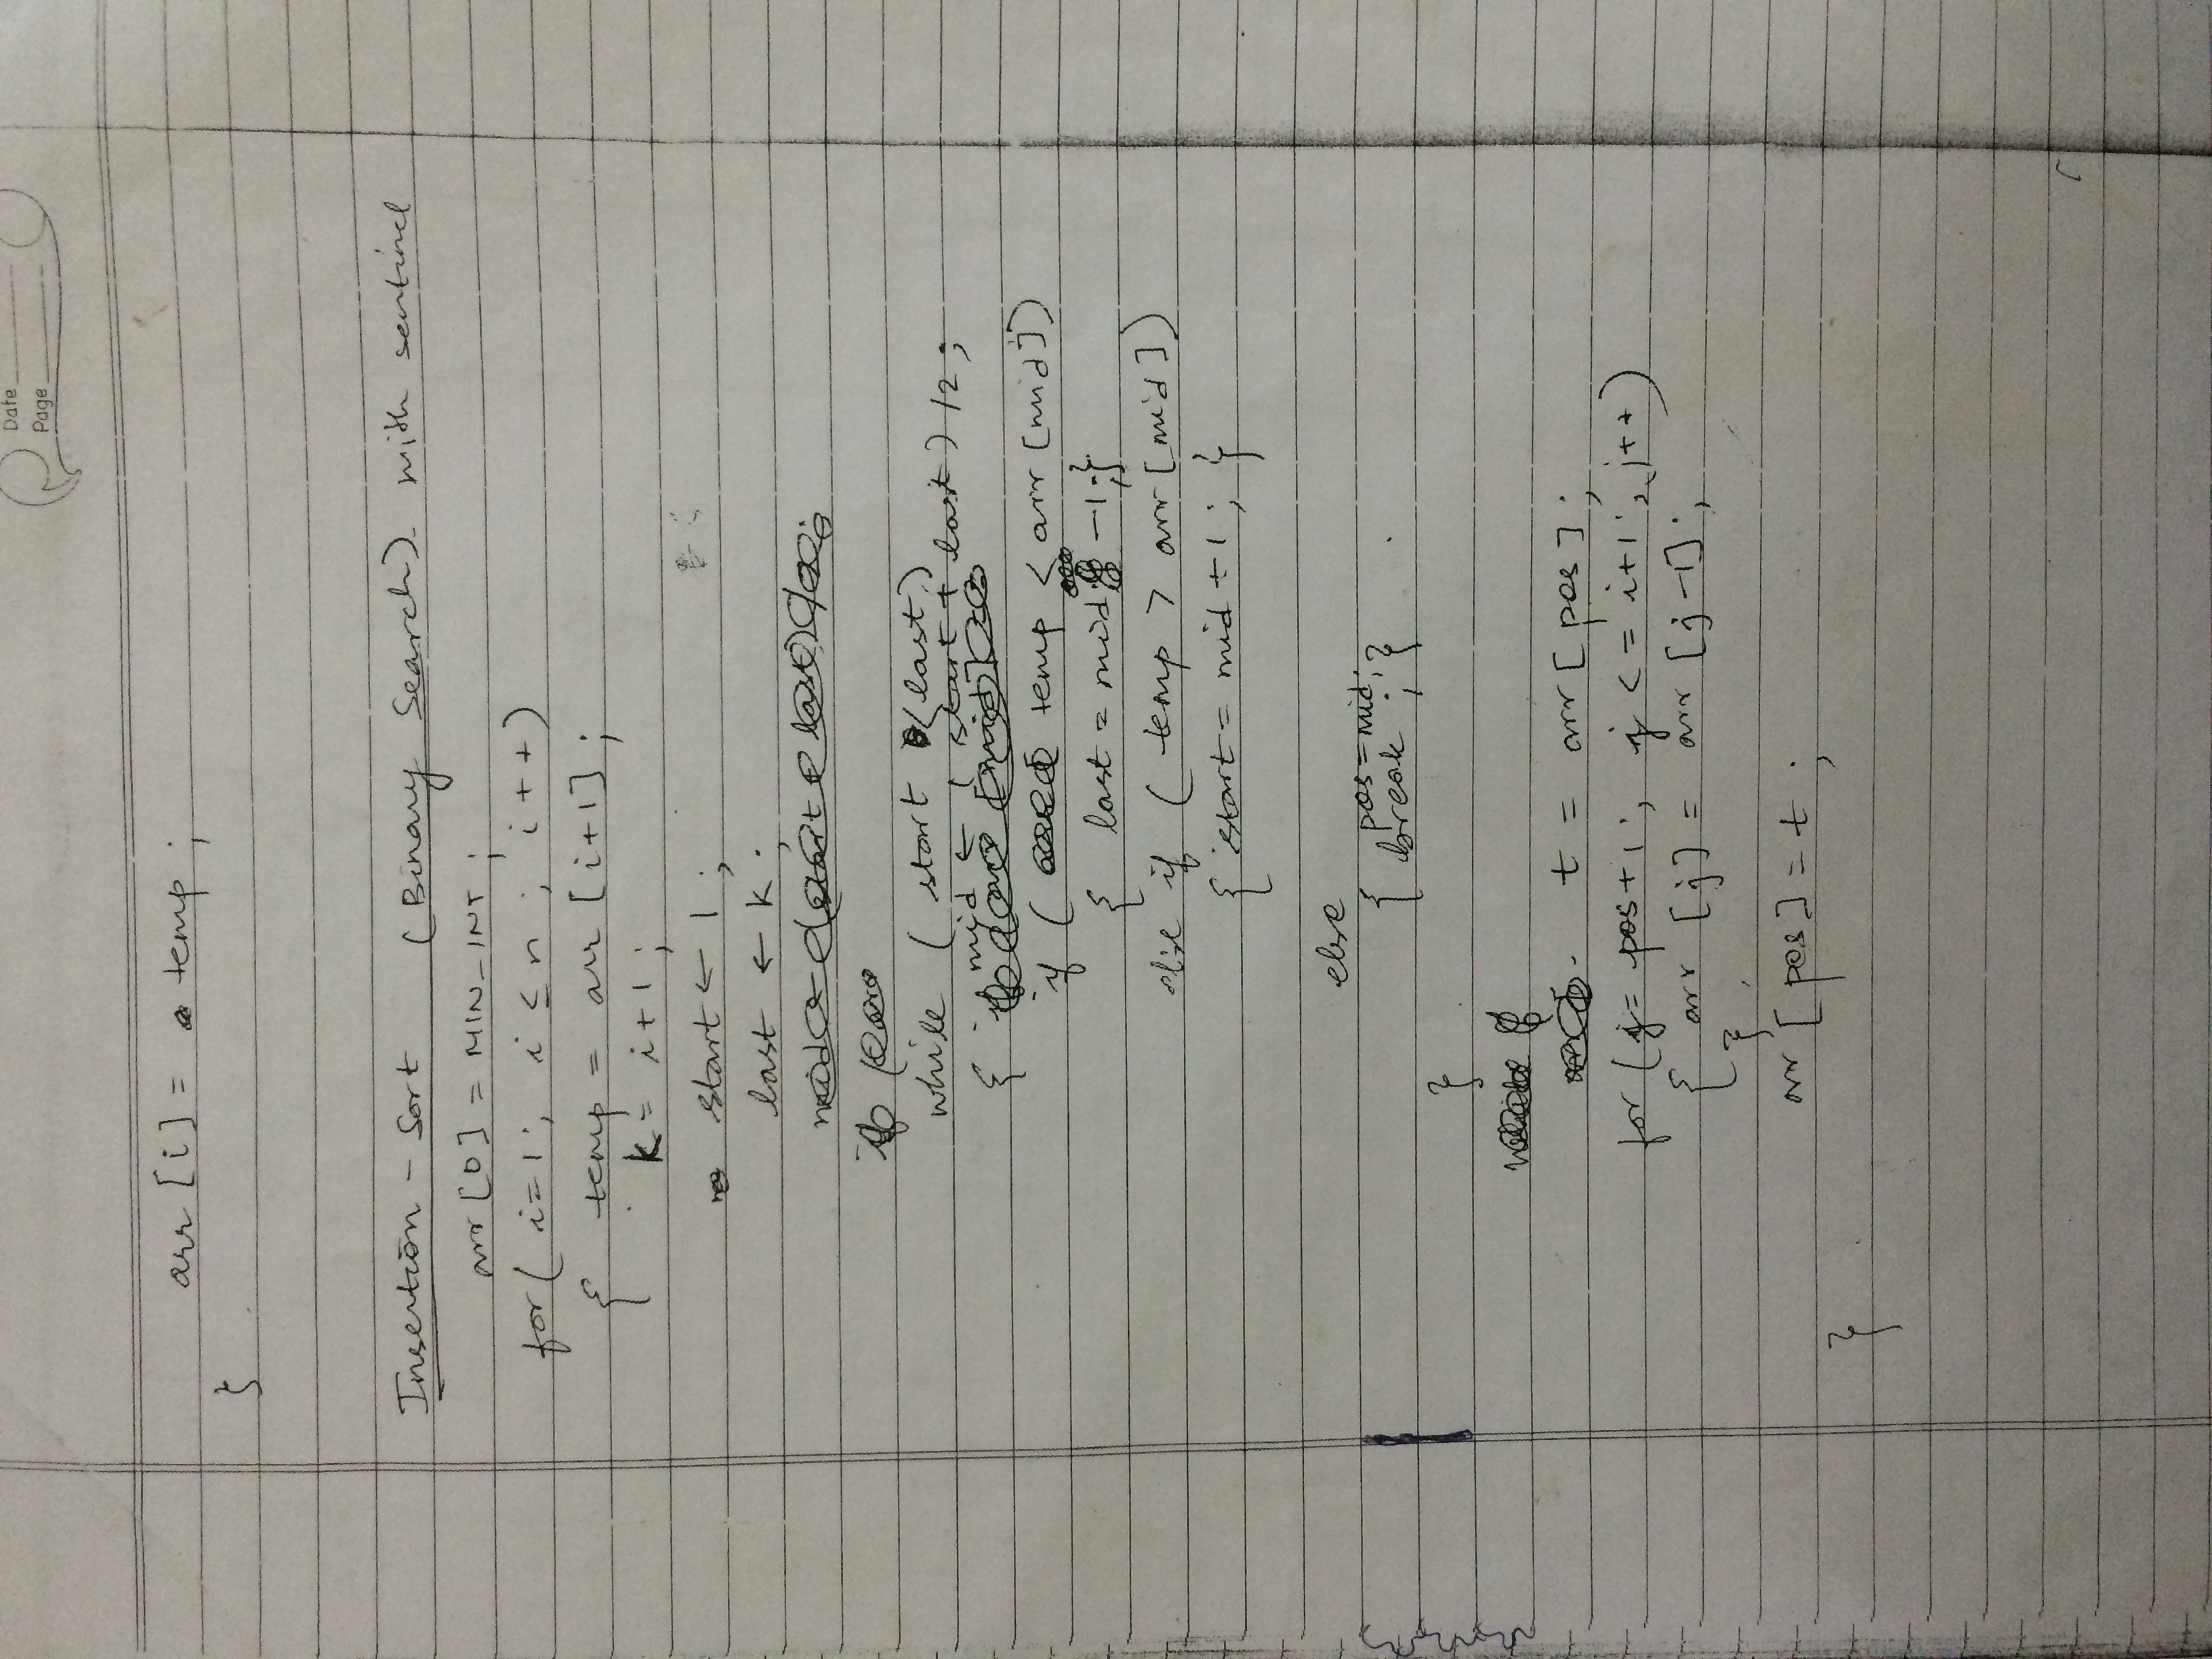 Date
Page
arr [i] = temp ;
}
Insertion - Sort (Binary Search) with sentinel
arr [0] = MIN_INT ;
for( i=1; i ≤ n ; i++)
{ temp = arr [i+1] ;
k = i+1 ;
start ← 1 ;
last ← k ;
while ( start < last )
mid ← ( start + last ) /2 ;
{
if ( temp < arr [mid])
{ last = mid -1 ;}
else if ( temp > arr [mid])
{ start = mid +1 ; }
else
{ pos = mid ;
break ; }
}
t = arr [ pos ] ;
for (j= pos+1 ; j <= i+1 ; j++)
{ arr [j] = arr [j-1] ;
}
arr [pos] = t ;
}